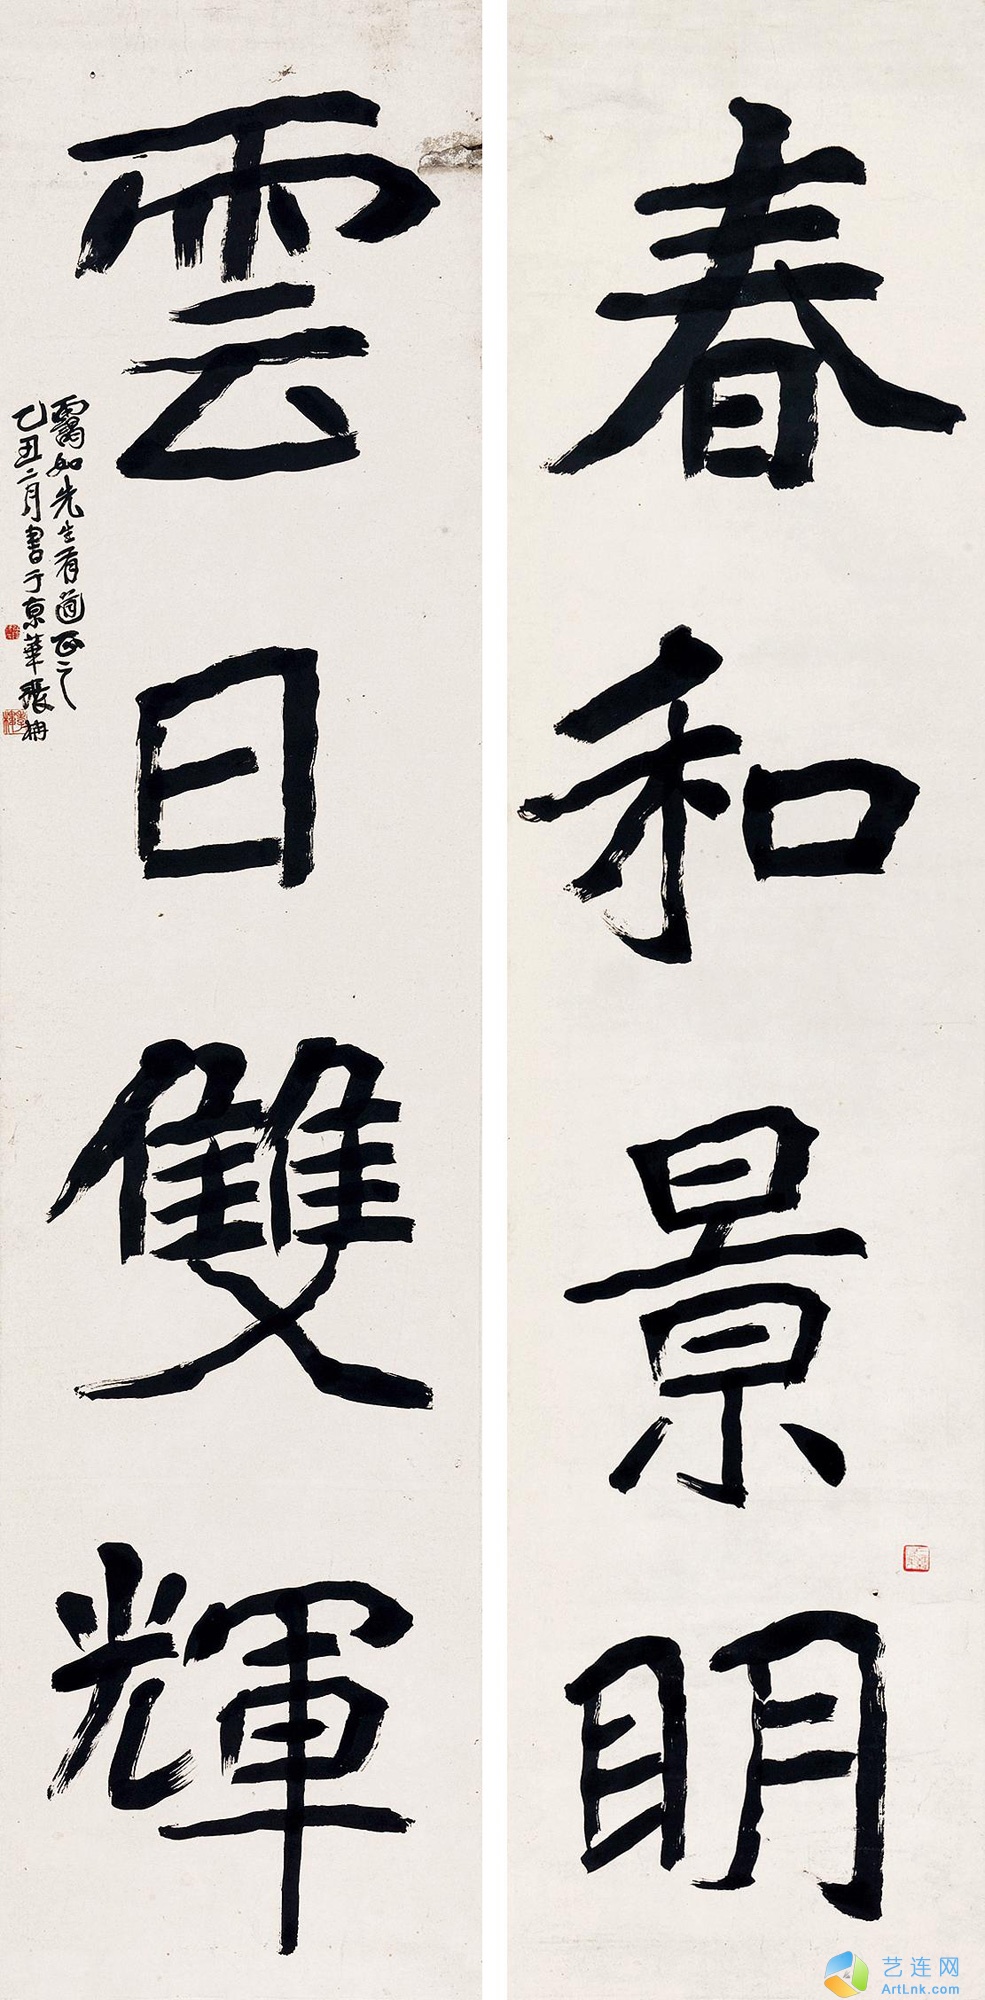 春和景明
雲日雙輝
霱如先生有道正之
乙丑二月書于京華張栴
艺连网
ArtLnk.com